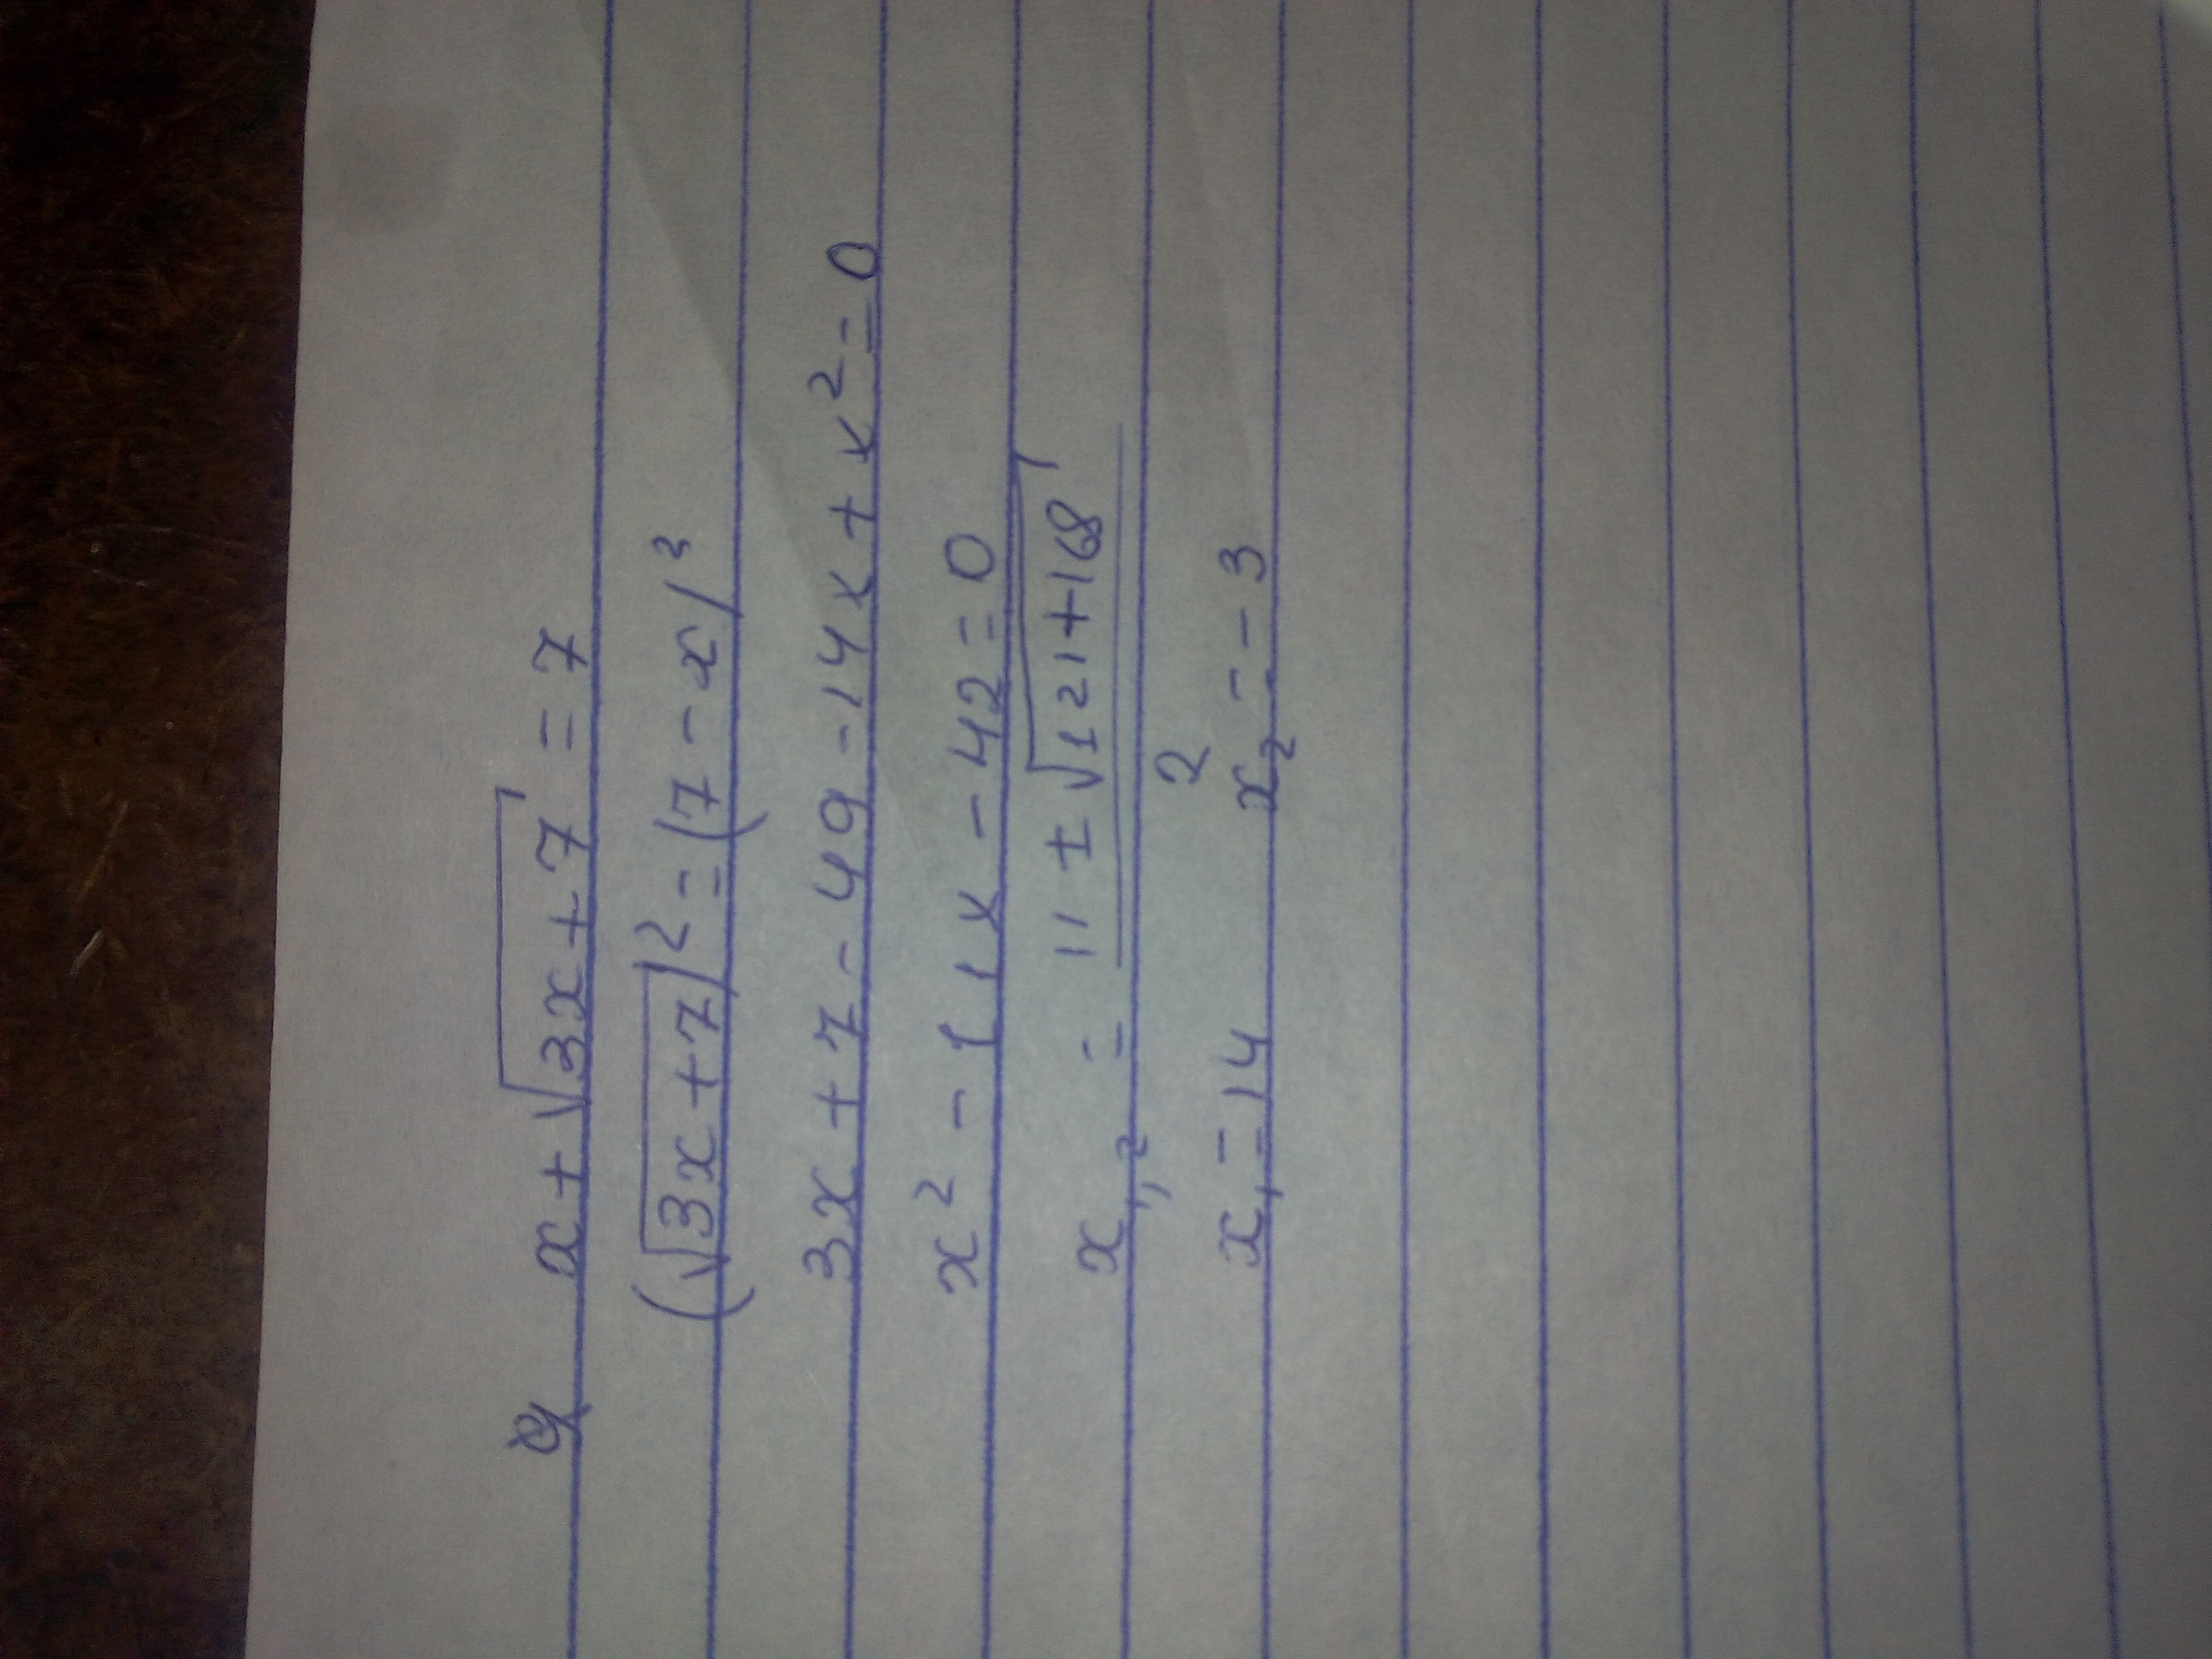 x + √3x + 7 = 7
(√3x + 7)² = (7 - x)²
3x + 7 - 49 - 14x + x² = 0
x² - 11x - 42 = 0
x₁,₂ = 11 ± √121 + 168
2
x₁ = 14 x₂ = - 3